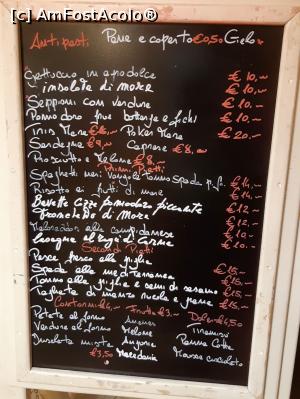 [c] AmFostAcolo®
Antipasti Pane e coperto €0,50 Gelo
in agrodolce €10,-
insalata di mare €10,-
Seppioni con verdure €10,-
Pomodoro fiue bottarga e fichi €10,-
Tris Mare Poker Mare €20,-
Sardegna €9,- Caprese €8,-
Prosciutto e Melone €8,-
Primi Piatti
Spaghetti neri Vongole Pomo Spada €14,-
Risotto ai frutti di mare €14,-
Bavette Cozze pomodoro piccante €12,-
di Mare €12,-
alla campidanese
Lasagne al ragù di Carne €10,-
Secondi Piatti
Pesce fresco alla griglia
Spada alla mediterranea €15,-
Tonno alla griglia e semi di sesamo €15,-
Tagliata di manzo rucola e grana €15,-
Contorni €4,- Frutta €3,- Dolci €4,50
Patate al forno Ananas Tiramisu
Verdure al forno Melone Panna Cotta
Insalata mista Anguria Mousse cioccolato
€3,50 Macedonia